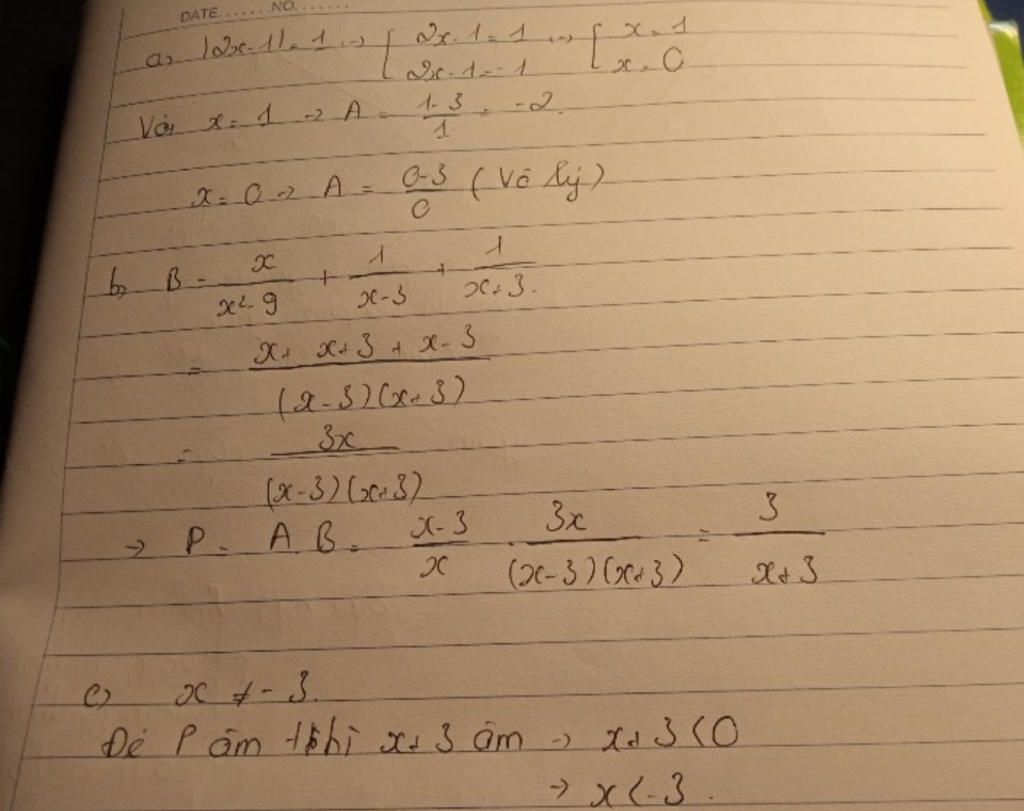 DATE.......NO.......
a, |2x-1| = 1 → [ 2x-1 = 1 → [ x = 1
2x-1 = -1 x = 0
Với x = 1 → A = \frac{1-3}{1} = -2.
x = 0 → A = \frac{0-3}{0} (Vô lý)
b, B = \frac{x}{x²-9} + \frac{1}{x-3} + \frac{1}{x+3}.
= \frac{x + x+3 + x-3}{(x-3)(x+3)}
= \frac{3x}{(x-3)(x+3)}
→ P = A.B = \frac{x-3}{x} . \frac{3x}{(x-3)(x+3)} = \frac{3}{x+3}
c) x ≠ -3.
Để P âm thì x+3 âm → x+3 < 0
→ x < -3.